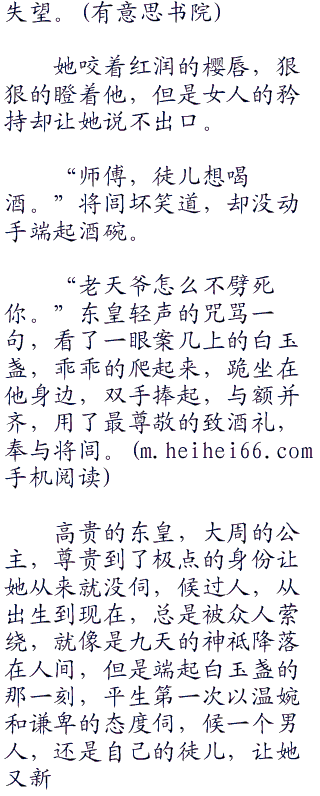 失望。(有意思书院)
她咬着红润的樱唇，狠
狠的瞪着他，但是女人的矜
持却让她说不出口。
“师傅，徒儿想喝
酒。”将闾坏笑道，却没动
手端起酒碗。
“老天爷怎么不劈死
你。”东皇轻声的咒骂一
句，看了一眼案几上的白玉
盏，乖乖的爬起来，跪坐在
他身边，双手捧起，与额并
齐，用了最尊敬的致酒礼，
奉与将闾。(m.heihei66.com
手机阅读)
高贵的东皇，大周的公
主，尊贵到了极点的身份让
她从来就没伺，候过人，从
出生到现在，总是被众人萦
绕，就像是九天的神祗降落
在人间，但是端起白玉盏的
那一刻，平生第一次以温婉
和谦卑的态度伺，候一个男
人，还是自己的徒儿，让她
又新